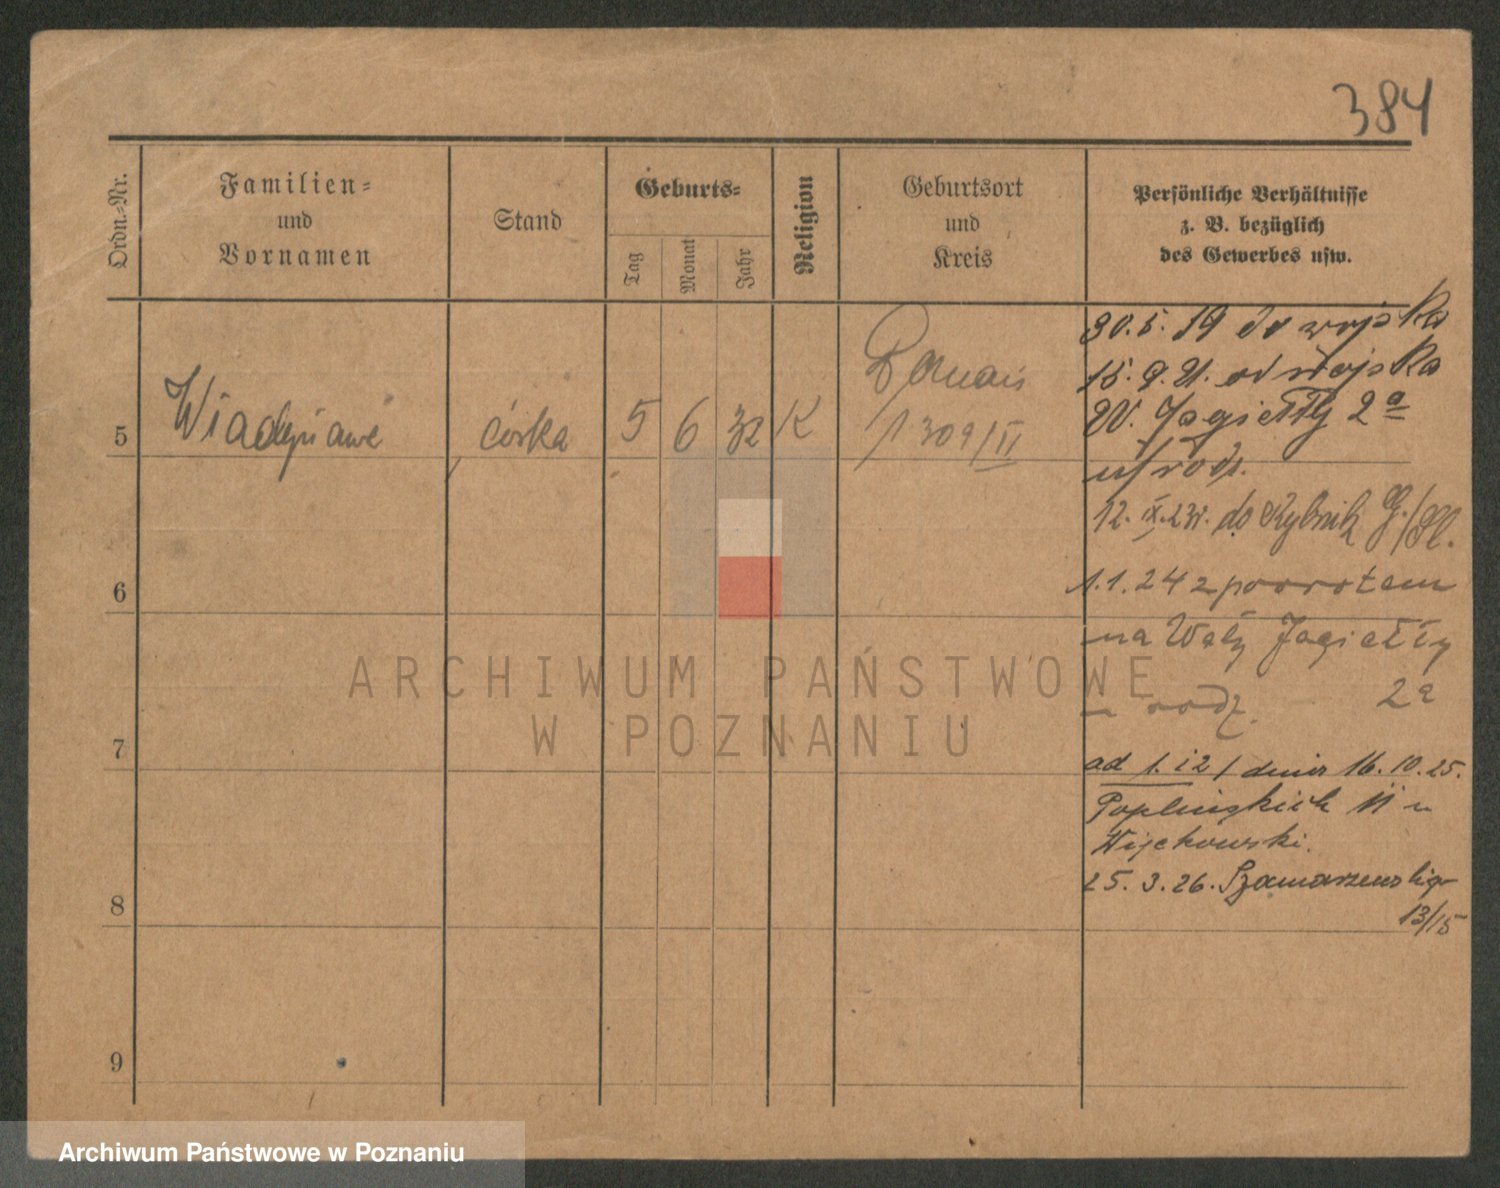 384
Ordn.-Nr.
Familien-
und
Vornamen
Stand
Geburts-
Tag
Monat
Jahr
Religion
Geburtsort
und
Kreis
Persönliche Verhältnisse
z. B. bezüglich
des Gewerbes usw.
5
córka
5
6
32
K
Poznań
1309/II
30.5.19 do wojska
15.9.21. od wojska
W. Jagiełły 2a
u/rodz.
12.IX.23r. do Rybnik G./Śl.
1.1.24 z powrotem
na Wały Jagiełły
u rodz. 2a
ad 1. i 2/ dnia 16.10.25.
Poplińskich 11 u
Więckowski.
25.3.26. Szamarzewskiego
13/15
6
7
8
9
ARCHIWUM PAŃSTWOWE
W POZNANIU
Archiwum Państwowe w Poznaniu